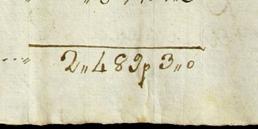 2„489p 3„0